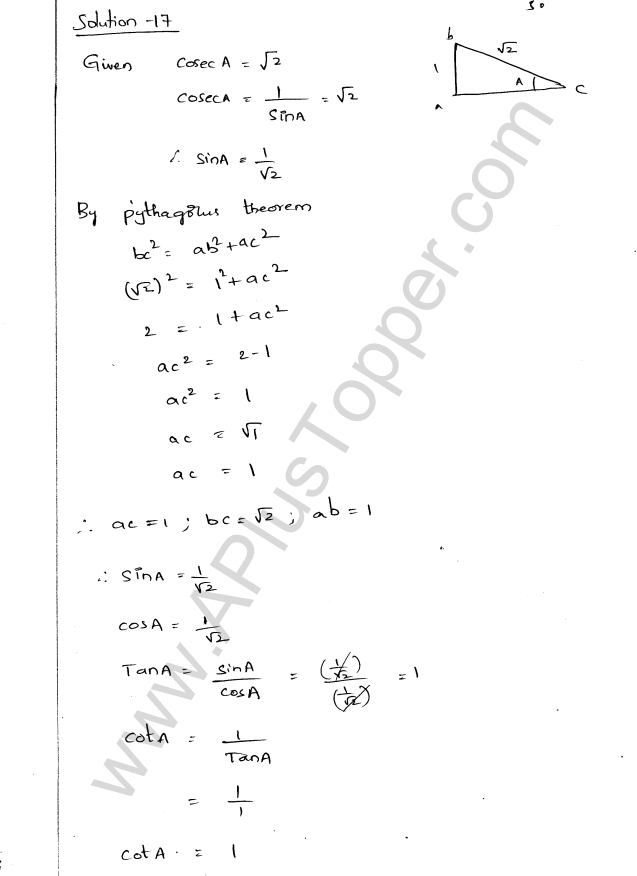 50
Solution -17
b
√2
1
A
C
a
Given cosec A = √2
cosecA = 1/SinA = √2
∴ SinA = 1/√2
By pythagorus theorem
bc² = ab² + ac²
(√2)² = 1² + ac²
2 = 1 + ac²
ac² = 2-1
ac² = 1
ac = √1
ac = 1
∴ ac = 1 ; bc = √2 ; ab = 1
∴ SinA = 1/√2
cosA = 1/√2
TanA = sinA/cosA = (1/√2)/(1/√2) = 1
cotA = 1/TanA
= 1/1
cotA = 1
www.APlusTopper.com